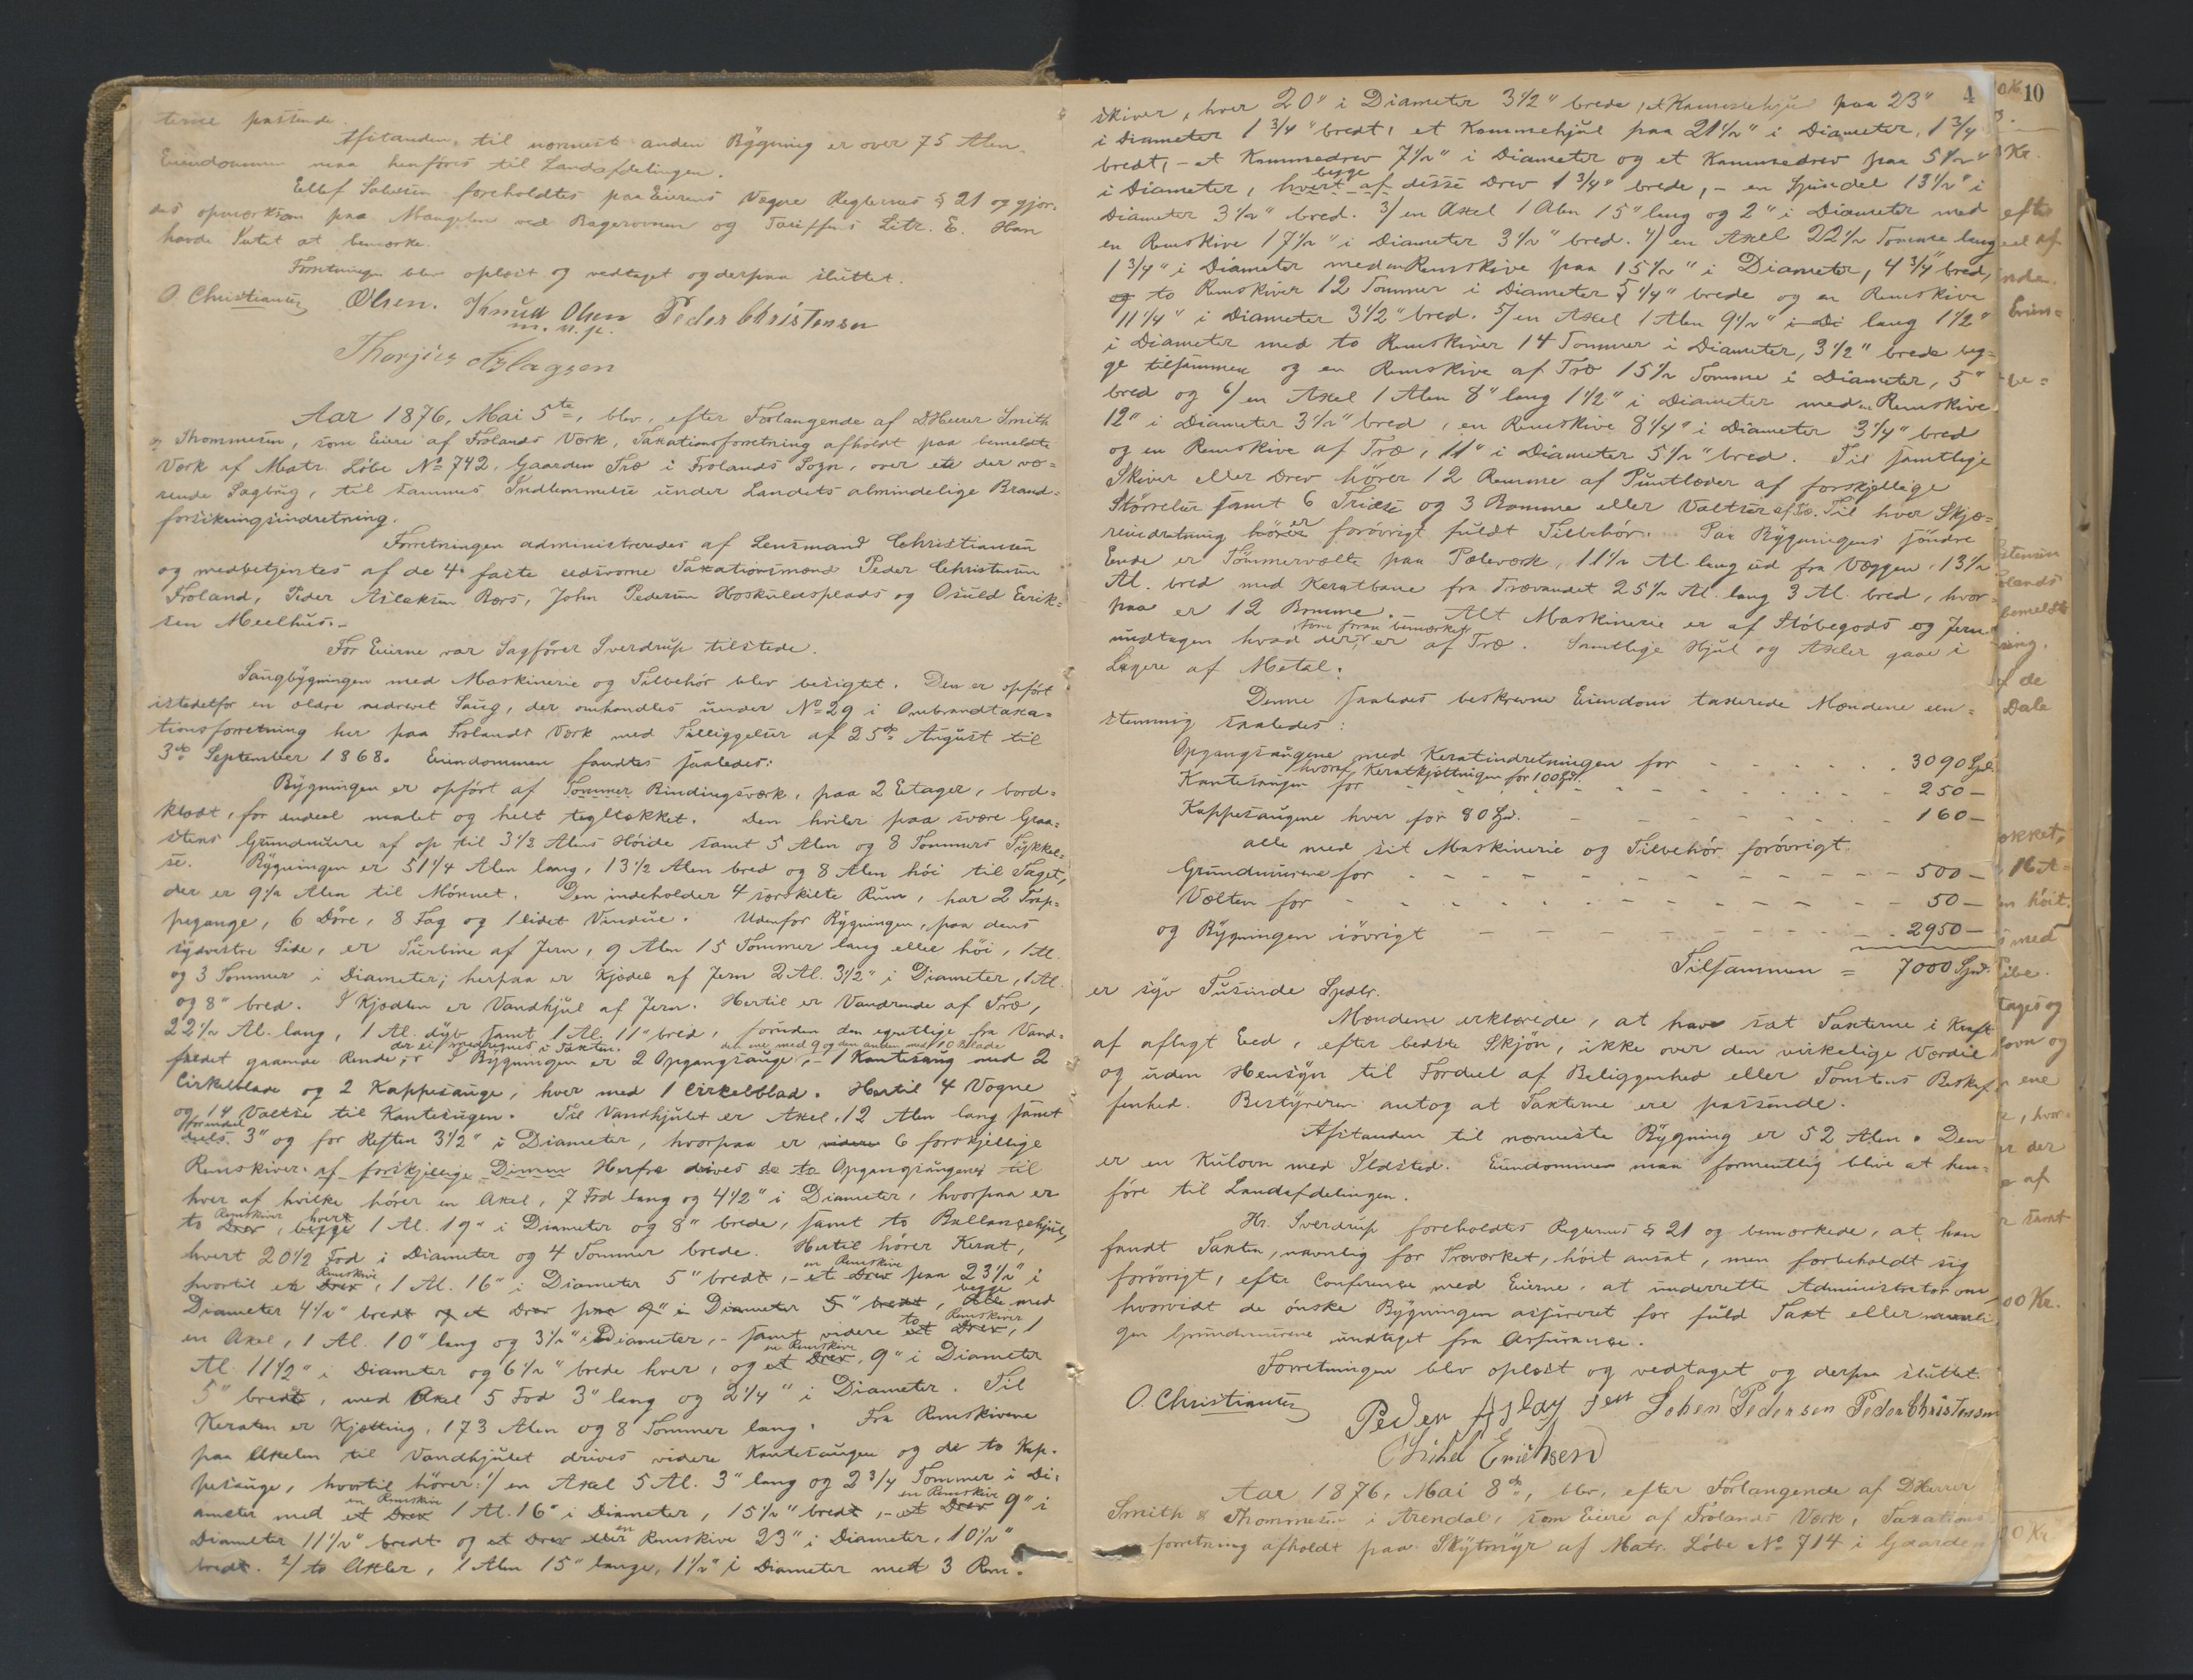 terne passende.
Afstanden til nærmest anden Bÿgning er over 75 Alen.
Eiendommen maa henføres til Landafdelingen.
Ellef Salvesen foreholdtes paa Eierens Vegne Reglernes § 21 og gjor-
des opmærksom paa Mangelen ved Bagerovnen og Tariffens Litr. E. Han
havde Intet at bemærke.
Forretningen blev oplæst og vedtaget og derpaa sluttet.
O. Christiansen Olsen. Knud Olsen Peder Christensen
m. n. p.
Thorjus Aslagsen
Aar 1876, Mai 5te, blev, efter Forlangende af DHerrer Smith
& Thommesen, som Eiere af Frolands Værk, Taxationsforretning afholdt paa bemeldte
Værk af Matr. Løbe No 742, Gaarden Træ i Frolands Sogn, over ete der væ-
rende Sagbrug, til sammes Indlemmelse under Landets almindelige Brand-
forsikringsindretning.
Forretningen administreredes af Lensmand Christiansen
og medbetjentes af de 4 faste eedsvorne Taxationsmænd Peder Christensen
Froland, Peder Aslaksen Bærs, John Pedersen Hoskuldsplads og Osuld Eerik-
sen Meelhus.-
For Eierne var Sagfører Sverdrup tilstede.
Saugbÿgningen med Maskinerie og Tilbehør blev besigtet. Den er opført
istedetfor en ældre nedrevet Saug, der omhandles under No 29 i Ombrandtaxa-
tionsforretning her paa Frolands Værk med Tilliggelser af 25de August til
3de September 1868. Eiendommen fandtes saaledes:
Bÿgningen er opført af Tømmer Bindingsværk, paa 2 Etager, bord-
klædt, for endeel malet og helt tegltækket. Den hviler paa svære Graa-
stens Grundmure af op til 3 1/2 Alens Høide samt 5 Alen og 8 Tommers Tÿkkel-
se. Bÿgningen er 51 1/4 Alen lang, 13 1/2 Alen bred og 8 Alen høi til Taget,
der er 9 1/2 Alen til Mønnet. Den indeholder 4 særskilte Rum, har 2 Trap-
pegange, 6 Døre, 8 Fag og 1 lidet Vindue. Udenfor Bÿgningen, paa dens
sÿdvestre Side, er Turbine af Jern, 9 Alen 15 Tommer lang eller høi, 1 Al.
og 3 Tommer i Diameter; herpaa er Kjedel af Jern 2 Al. 3 1/2" i Diameter, 1 Al.
og 8" bred. I Kjedlen er Vandhjul af Jern. Hertil er Vandrende af Træ,
22 1/2 Al. lang, 1 Al. dÿb samt 1 Al. 11" bred, foruden den egentlige fra Vand-
der ei medregnes i Taxten. den ene med 9 og den anden med 10 Blade
faldet gaaende Rende, I Bÿgningen er 2 Opgangsauge, - 1 Kantesaug med 2
Cirkelblade og 2 Kappesauge, hver med 1 Cirkelblad. Hertil 4 Vogne
og 14 Valtse til Kantesagen. Til Vandhjulet er Axel, 12 Alen lang samt
for endeel
deels 3" og for Resten 3 1/2" i Diameter, hvorpaa er videre 6 forskjellige
Remskiver. af forskjellige Dimen Herfra drives de to Opgangsaugene, til
hver af hvilke hører en Axel, 7 Fod lang og 4 1/2" i Diameter, hvorpaa er
Remskiver hvert
to Drev, begge 1 Al. 19" i Diameter og 8" brede, samt to Ballancehjul,
hvert 20 1/2 Fod i Diameter og 4 Tommer brede. Hertil hører Kerat,
Remskive en Remskive
hvortil en Drev, 1 Al. 16" i Diameter 5" bredt, - et Drev paa 23 1/2" i
begge
Diameter 4 1/2" bredt og et Drev paa 9" i Diameter 5" bredt, Alle med
to Remskiver
en Axel, 1 Al. 10" lang og 3 1/2" i Diameter, - samt videre et Drev, 1
en Remskive
Al. 11 1/2" i Diameter og 6 1/2" brede hver, og et Drev, 9" i Diameter
5" bredt, med Axel 5 Fod 3" lang og 2 1/4" i Diameter. Til
Keraten er Kjetting, 173 Alen og 8 Tommer lang. Fra Remskiverne
paa Axelen til Vandhjulet drives videre Kantesaugen og de to Kap-
pesauge, hvortil hører: 1/ en Axel 5 Al. 3" lang og 2 3/4 Tommer i Di-
en Remskive en Remskive
ameter med et Drev 1 Al. 16" i Diameter, 15 1/2" bredt, - et Drev 9" i
Diameter 11 1/2" bredt og et Drev eller en Remskive 23" i Diameter, 10 1/2"
bredt. 2/ to Axler, 1 Alen 15" lange, 1 1/2" i Diameter med 3 Rem-
4
10
skiver, hver 20" i Diameter 3 1/2" brede, et Kammehjul paa 23"
i Diameter 1 3/4" bredt, et Kammehjul paa 21 1/2" i Diameter, 1 3/4
bredt, - et Kammedrev 7 1/2" i Diameter og et Kammedrev paa 5 1/2"
begge
i Diameter, hvert af disse Drev 1 3/4" brede, - en Spindel 13 1/2" i
Diameter 3 1/2" bred. 3/ en Axel 1 Alen 15" lang og 2" i Diameter med
en Remskive 17 1/2" i Diameter 3 1/2" bred. 4/ en Axel 22 1/2 Tomme lang
1 3/4" i Diameter med en Remskive paa 15 1/2" i Diameter, 4 3/4" bred,
og to Remskiver 12 Tommer i Diameter 5 1/4" brede og en Remskive
11 1/4" i Diameter 3 1/2" bred. 5/ en Axel 1 Alen 9 1/2" i Di lang 1 1/2"
i Diameter med to Remskiver 14 Tommer i Diameter, 3 1/2" brede beg-
ge tilsammen og en Remskive af Træ 15 1/2 Tomme i Diameter, 5"
bred og 6/ en Axel 1 Alen 8" lang 1 1/2" i Diameter med en Remskive
12" i Diameter 3 1/2" bred, en Remskive 8 1/4" i Diameter 3 1/4" bred
og en Remskive af Træ, 11" i Diameter 5 1/2" bred. Til samtlige
Skiver eller Drev hører 12 Remme af Puntlæder af forskjellige
Størrelser samt 6 Tridse og 3 Bomme eller Valtser af Træ. Til hver Skjæ-
er
reindretning hører forøvrigt fuldt Tilbehør. Paa Bÿgningens søndre
Ende er Tømmervælte paa Pæleværk, 11 1/2 Al. lang ud fra Væggen, 13 1/2
Al. bred med Keratbane fra Trævandet 25 1/2 Al. lang 3 Al. bred, hvor-
paa er 12 Bomme. - Alt Maskinerie er af Støbegods og Jern
som foran bemærket
undtagen hvad der er af Træ. Samtlige Hjul og Axler gaae i
Lagere af Metal.
Denne saaledes beskrevne Eiendom taxerede Mændene een-
stemmig saaledes:
Opgangsaugene med Keratindretningen for - - - 3090 Spd.
hvoraf Keratkjættingen for 100 Spd.
Kantesaugen for - - - 250 -
Kappesaugene hver for 80 Spd. - - - 160 -
alle med sit Maskinerie og Tilbehør forøvrigt.
Grundmurene for - - - 500 -
Vælten for - - - 50 -
og Bÿgningen iøvrigt - - - 2950 -
Tilsammen = 7000 Spd.
er sÿv Tusinde Spdlr.
Mændene erklærede, at have sat Taxterne i Kraft
af aflagt Eed, efter bedste Skjøn, ikke over den virkelige Værdie
og uden Hensÿn til Fordeel af Beliggenhed eller Tomtens Beskaf-
fenhed. Bestÿreren antog at Taxterne ere passende.
Afstanden til nærmeste Bÿgning er 52 Alen. Den
er en Kulovn med Ildsted. Eiendommen maa formentlig blive at hen-
føre til Landafdelingen.
Hr. Sverdrup foreholdtes Reglernes § 21 og bemærkede, at han
fandt Taxten, navnlig for Træværket, høit ansat, men forbeholdt sig
forøvrigt, efter Conference med Eierne, at underrette Administrator om
hvorvidt de ønske Bÿgningen assureret for fuld Taxt eller navnli
gen Grundmurene undtaget fra Assurance.
Forretningen blev oplæst og vedtaget og derpaa sluttet.
O. Christiansen Peder Aslagsen Johen Pedersen Peder Christensen
Osuld Erichsen
Aar 1876, Mai 8de, blev, efter Forlangende af DHerrer
Smith & Thommesen i Arendal, som Eiere af Frolands Værk, Taxations
forretning afholdt paa Skÿtmÿr af Matr. Løbe No 714 i Gaarden
Kr.
efter
eel af
inde.
Eien-
be-
stensen
olands
bemeldte
ning.
f de
Dale
ækket,
16 A-
en høit.
med
ibe.
tages og
ovn og
ene
e, hvor-
er der
af
r samt
00 Kr.
0 Kr